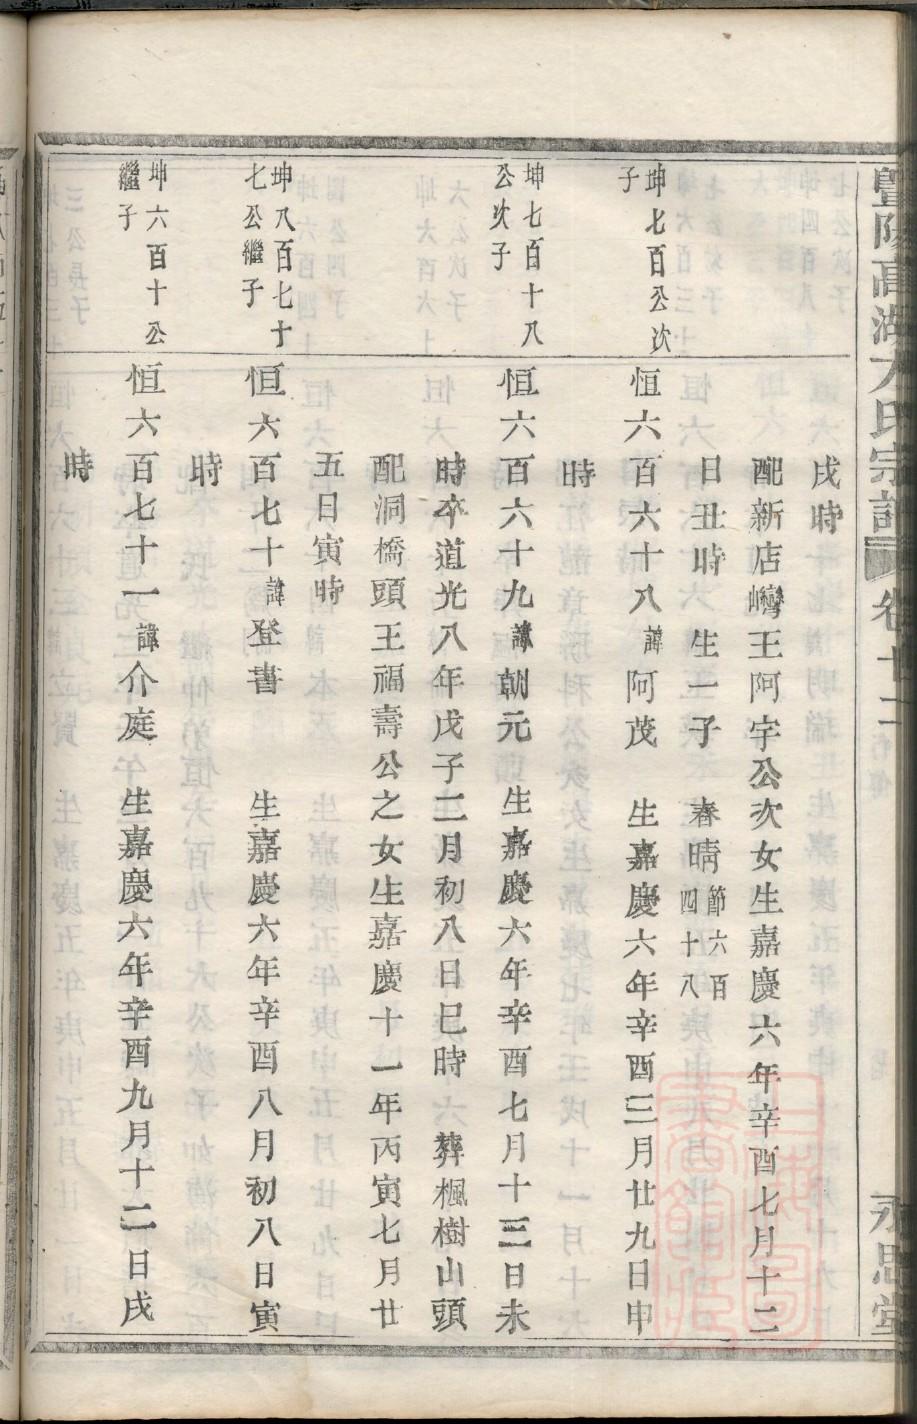 暨陽高湖方氏宗譜 卷七十二 永思堂
戌時
配新店巒王阿宇公次女生嘉慶六年辛酉七月十二
日丑時 生一子 春晴節六百四十八
坤七百公次子
恒六百六十八諱阿茂 生嘉慶六年辛酉三月廿九日申
時
坤七百十八公次子
恒六百六十九諱朝元 生嘉慶六年辛酉七月十三日未
時卒道光八年戊子二月初八日巳時 葬楓樹山頭
配洞橋頭王福壽公之女生嘉慶十一年丙寅七月廿
五日寅時
坤八百七十七公繼子
恒六百七十諱登書 生嘉慶六年辛酉八月初八日寅
時
坤六百十公繼子
恒六百七十一諱介庭 生嘉慶六年辛酉九月十二日戌
時